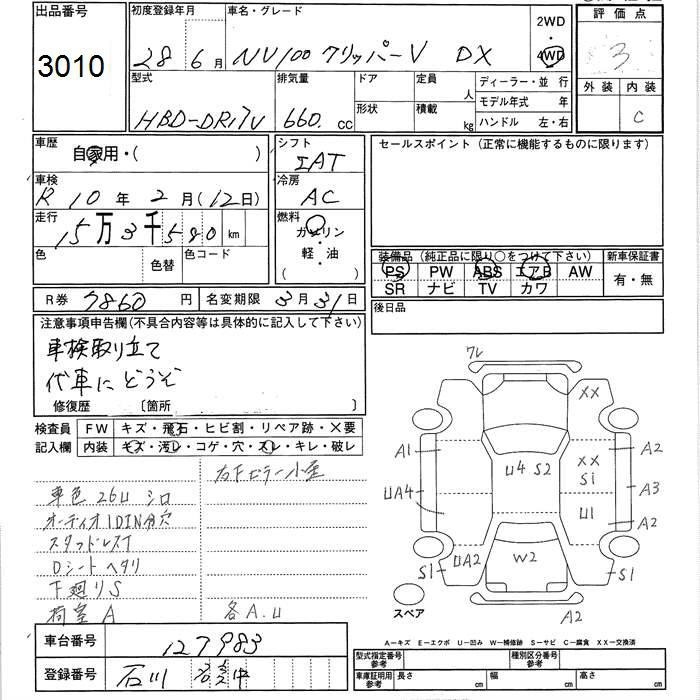 出品番号
3010
初度登録年月
28年6月
車名・グレード
NV100クリッパーV DX
2WD
4WD
評価点
3
外装 内装
C
型式
HBD-DR17V
排気量
660. CC
ドア
形状
定員
人
積載
kg
ディーラー・並行
モデル年式 年
ハンドル 左・右
車歴
自家用・( )
シフト
IAT
セールスポイント (正常に機能するものに限ります)
車検
R 10年2月(12日)
冷房
AC
走行
15万3千590km
燃料
ガソリン
軽・油
色
色替
色コード
装備品 (純正品に限り○をつけて下さい)
新車保証書
PS PW ABS エアB AW
SR ナビ TV カワ
有・無
R券 7860円
名変期限 3月31日
後日品
注意事項申告欄(不具合内容等は具体的に記入して下さい)
車検取り立て
代車にどうぞ
修復歴 〔箇所 〕
検査員
記入欄
FW キズ・飛石・ヒビ割・リペア跡・×要
内装 キズ・汚レ・コゲ・穴・スレ・キレ・破レ
車色 26U シロ
オーディオ1DIN分穴
スタッドレスT
Dシートヘタリ
下廻りS
荷室 A
各A.U
ワレ
XX
A1
UA4
U4 S2
XX
S1
U1
A2
A3
A2
S1
UA2
W2
S1
A2
スペア
A−キズ E−エクボ U−凹み W−補修跡 S−サビ C−腐食 XX−交換済
車台番号
127983
登録番号
石川
型式指定番号
参考
種別区分番号
参考
車庫証明用
参考
長さ cm
幅 cm
高さ cm